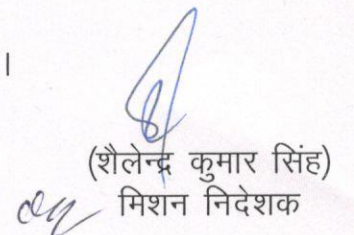 ।
(शैलेन्द्र कुमार सिंह)
मिशन निदेशक